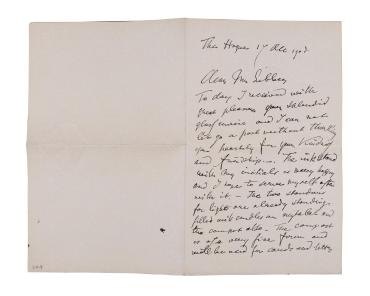 The Hague 17 Dec 1903
Dear Mr Libbey
To day I received with
great pleasure your splendid
glass service and I can not
let go a post without thanking
you heartily for your kindness
and friendship. The inkstand
with my initials is very happy
and I hope to serve myself often
with it. – The two standards
for light are already standing
filled with candles on my table and
the compost also – The compost
is of a very fine form and
will be used for cards and letters